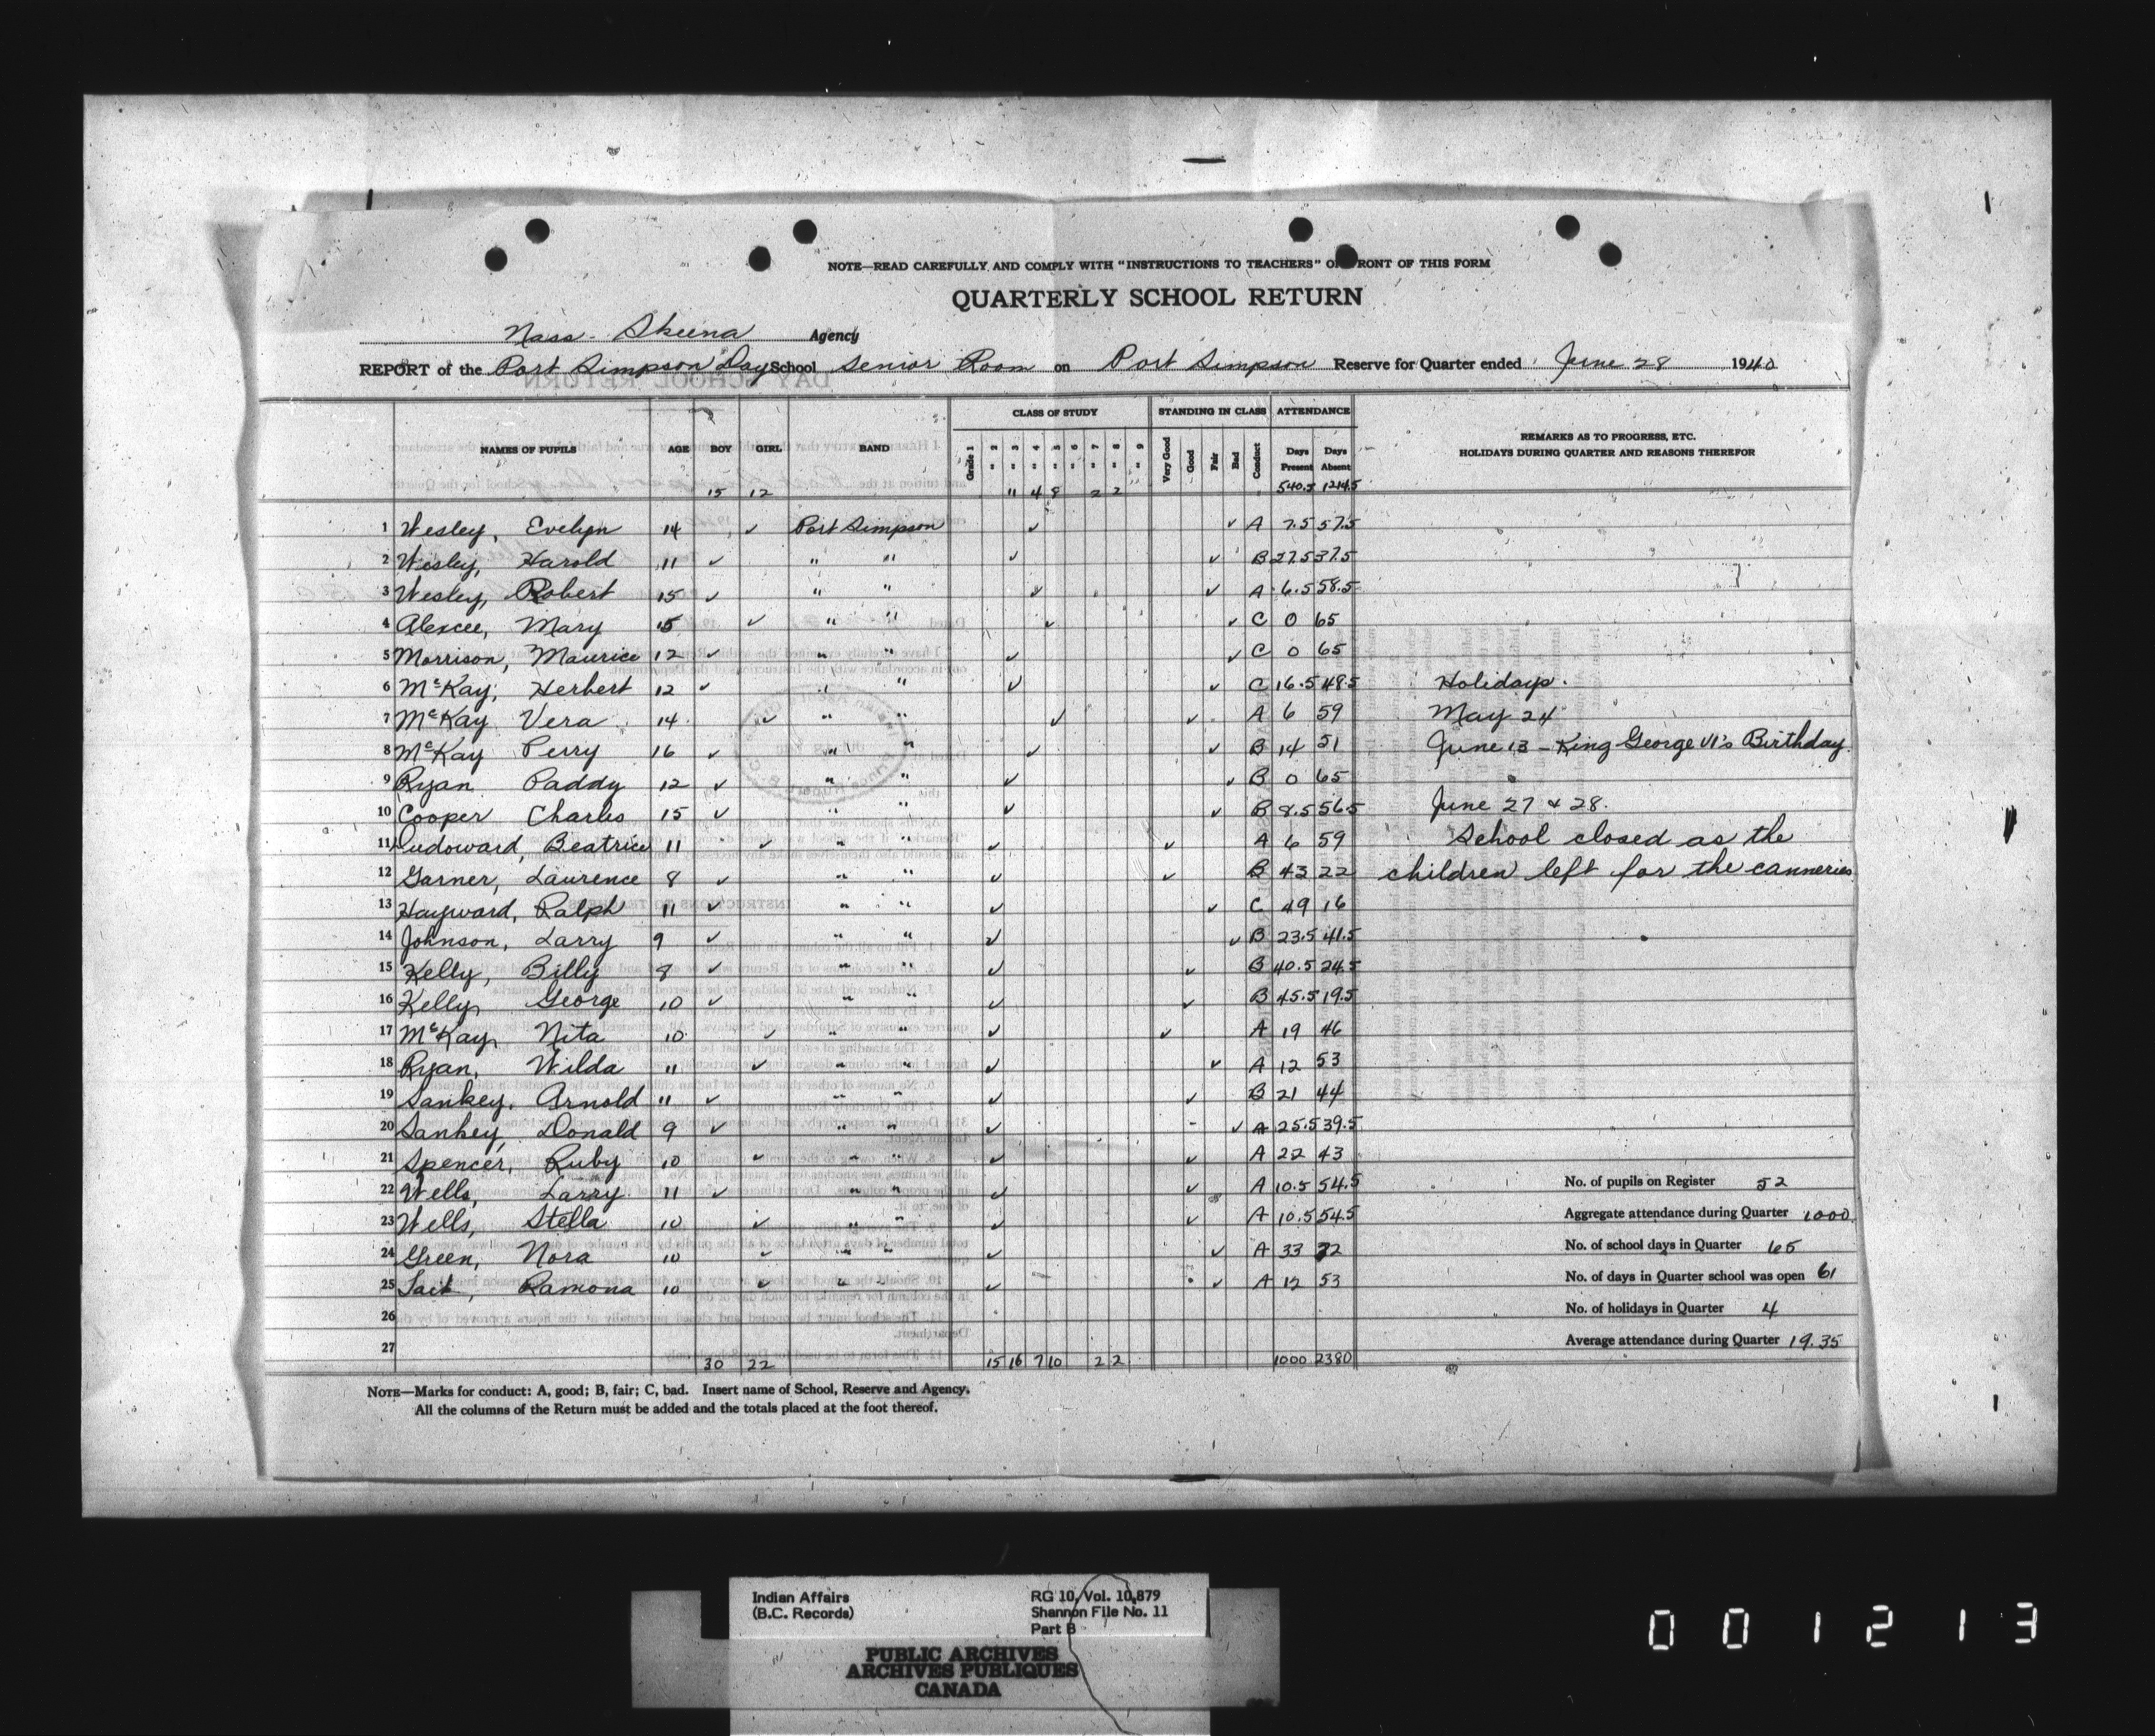 NOTE—READ CAREFULLY AND COMPLY WITH "INSTRUCTIONS TO TEACHERS" O RONT OF THIS FORM
QUARTERLY SCHOOL RETURN
Nass - Skeena Agency
REPORT of the Port Simpson Day School Senior Room on Port Simpson Reserve for Quarter ended June 28 1940
NAMES OF PUPILS AGE BOY GIRL BAND CLASS OF STUDY STANDING IN CLASS ATTENDANCE REMARKS AS TO PROGRESS, ETC.
HOLIDAYS DURING QUARTER AND REASONS THEREFOR
Grade 1 " 2 " 3 " 4 " 5 " 6 " 7 " 8 " 9 Very Good Good Fair Bad Conduct Days Present Days Absent
15 12 11 4 8 2 2 540.5 1214.5
1 Wesley, Evelyn 14 ✓ Port Simpson ✓ ✓ A 7.5 57.5
2 Wesley, Harold 11 ✓ " " ✓ ✓ B 27.5 37.5
3 Wesley, Robert 15 ✓ " " ✓ ✓ A 6.5 58.5
4 Alexcee, Mary 15 ✓ " " ✓ ✓ C 0 65
5 Morrison, Maurice 12 ✓ " " ✓ ✓ C 0 65
6 McKay, Herbert 12 ✓ " " ✓ ✓ C 16.5 48.5 Holidays.
7 McKay Vera 14 ✓ " " ✓ ✓ A 6 59 May 24
8 McKay Perry 16 ✓ " " ✓ ✓ B 14 51 June 13 - King George VI's Birthday.
9 Ryan Paddy 12 ✓ " " ✓ ✓ B 0 65
10 Cooper Charles 15 ✓ " " ✓ ✓ B 8.5 56.5 June 27 & 28.
11 Dudoward, Beatrice 11 ✓ " " ✓ ✓ A 6 59 School closed as the
12 Garner, Laurence 8 ✓ " " ✓ ✓ B 43 22 children left for the canneries
13 Hayward, Ralph 11 ✓ " " ✓ ✓ C 49 16
14 Johnson, Larry 9 ✓ " " ✓ ✓ B 23.5 41.5
15 Kelly, Billy 8 ✓ " " ✓ ✓ B 40.5 24.5
16 Kelly, George 10 ✓ " " ✓ ✓ B 45.5 19.5
17 McKay, Nita 10 ✓ " " ✓ ✓ A 19 46
18 Ryan, Wilda 11 ✓ " " ✓ ✓ A 12 53
19 Sankey, Arnold 11 ✓ " " ✓ ✓ B 21 44
20 Sankey, Donald 9 ✓ " " ✓ ✓ A 25.5 39.5
21 Spencer, Ruby 10 ✓ " " ✓ ✓ A 22 43
22 Wells, Larry 11 ✓ " " ✓ ✓ A 10.5 54.5 No. of pupils on Register 52
23 Wells, Stella 10 ✓ " " ✓ ✓ A 10.5 54.5 Aggregate attendance during Quarter 1000
24 Green, Nora 10 ✓ " " ✓ ✓ A 33 32 No. of school days in Quarter 65
25 Tait, Ramona 10 ✓ " " ✓ ✓ A 12 53 No. of days in Quarter school was open 61
26 No. of holidays in Quarter 4
27 Average attendance during Quarter 19.35
30 22 15 16 7 10 2 2 1000 2380
NOTE—Marks for conduct: A, good; B, fair; C, bad. Insert name of School, Reserve and Agency.
All the columns of the Return must be added and the totals placed at the foot thereof.
Indian Affairs RG 10, Vol. 10,879
(B.C. Records) Shannon File No. 11
Part B
PUBLIC ARCHIVES
ARCHIVES PUBLIQUES
CANADA
001213